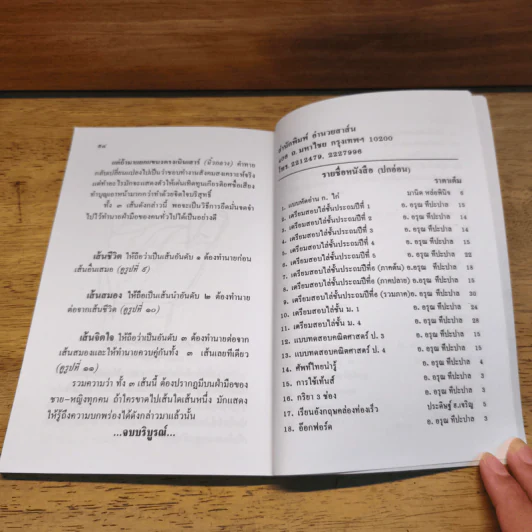 ๓๔
แต่ถ้านายแพนชนวดรงเนินเสาร์ (นิ้วกลาง) ทำทาย
กลับเปลี่ยนแปลงไปเป็นว่าชอบทำงานสังคมสงเคราะห์จริง
แต่ทำอะไรมักจะแสดงตัวให้เด่นเทิดทูนเกียรติยศชื่อเสียง
ทำบุญเอาหน้ามากกว่าทำด้วยจิตใจบริสุทธิ์
ทั้ง ๓ เส้นดังกล่าวนี้ พอจะเป็นวิธีการยึดมั่นจดจำ
ไปไว้ทำนายฝ่ามือของคนทั่วไปได้เป็นอย่างดี
เส้นชีวิต ให้ถือว่าเป็นเส้นอันดับ ๑ ต้องทำนายก่อน
เส้นอื่นเสมอ (ดูรูปที่ ๙)
เส้นสมอง ให้ถือเป็นเส้นนำอันดับ ๒ ต้องทำนาย
ต่อจากเส้นชีวิต (ดูรูปที่ ๑๐)
เส้นจิตใจ ให้ถือว่าเป็นเส้นอันดับ ๓ ต้องทำนายต่อจาก
เส้นสมองและให้ทำนายควบคู่กันทั้ง ๓ เส้นเลยทีเดียว
(ดูรูปที่ ๑๑)
รวมความว่า ทั้ง ๓ เส้นนี้ ต้องปรากฏมีบนฝ่ามือของ
ชาย-หญิงทุกคน ถ้าใครขาดไปเส้นใดเส้นหนึ่ง มักแสดง
ให้รู้ถึงความบกพร่องได้ดังกล่าวมาแล้วนั้น
...จบบริบูรณ์...
สำนักพิมพ์ อำนวยสาส์น
ถ.มหาไชย กรุงเทพฯ 10200
โทร. 2212479, 2227996
รายชื่อหนังสือ (ปกอ่อน)
ราคาเต็ม
1. แบบหัดอ่าน ก. ไก่ มานิต หล่อพินิจ 6
2. เตรียมสอบไล่ชั้นประถมปีที่ 1 อ. อรุณ ทีปะปาล 15
3. เตรียมสอบไล่ชั้นประถมปีที่ 2 อ. อรุณ ทีปะปาล 14
4. เตรียมสอบไล่ชั้นประถมปีที่ 3 อ. อรุณ ทีปะปาล 14
5. เตรียมสอบไล่ชั้นประถมปีที่ 4 อ. อรุณ ทีปะปาล 15
6. เตรียมสอบไล่ชั้นประถมปีที่ 5 อ. อรุณ ทีปะปาล 22
7. เตรียมสอบไล่ชั้นประถมปีที่6 (ภาคต้น) อ.อรุณ ทีปะปาล 18
8. เตรียมสอบไล่ชั้นประถมปีที่6 (ภาคปลาย) อ.อรุณ ทีปะปาล 15
9. เตรียมสอบไล่ชั้นประถมปีที่6 (รวมภาค)อ.อรุณ ทีปะปาล 30
10. เตรียมสอบไล่ชั้น ม. 1 อ. อรุณ ทีปะปาล 24
11. เตรียมสอบไล่ชั้น ม. 4 อ. อรุณ ทีปะปาล 28
12. แบบทดสอบคณิตศาสตร์ ป. 3 อ. อรุณ ทีปะปาล 15
13. แบบทดสอบคณิตศาสตร์ ป. 4 อ. อรุณ ทีปะปาล 15
14. ศัพท์ไทยน่ารู้ อ. อรุณ ทีปะปาล 4
15. การใช้เท็นส์ อ. อรุณ ทีปะปาล 3
16. กริยา 3 ช่อง อ. อรุณ ทีปะปาล 3
17. เรียนอังกฤษคล่องท่องเร็ว ประดิษฐ์ ส.เจริญ 5
18. อ๊อกฟอร์ด อ. อรุณ ทีปะปาล 3